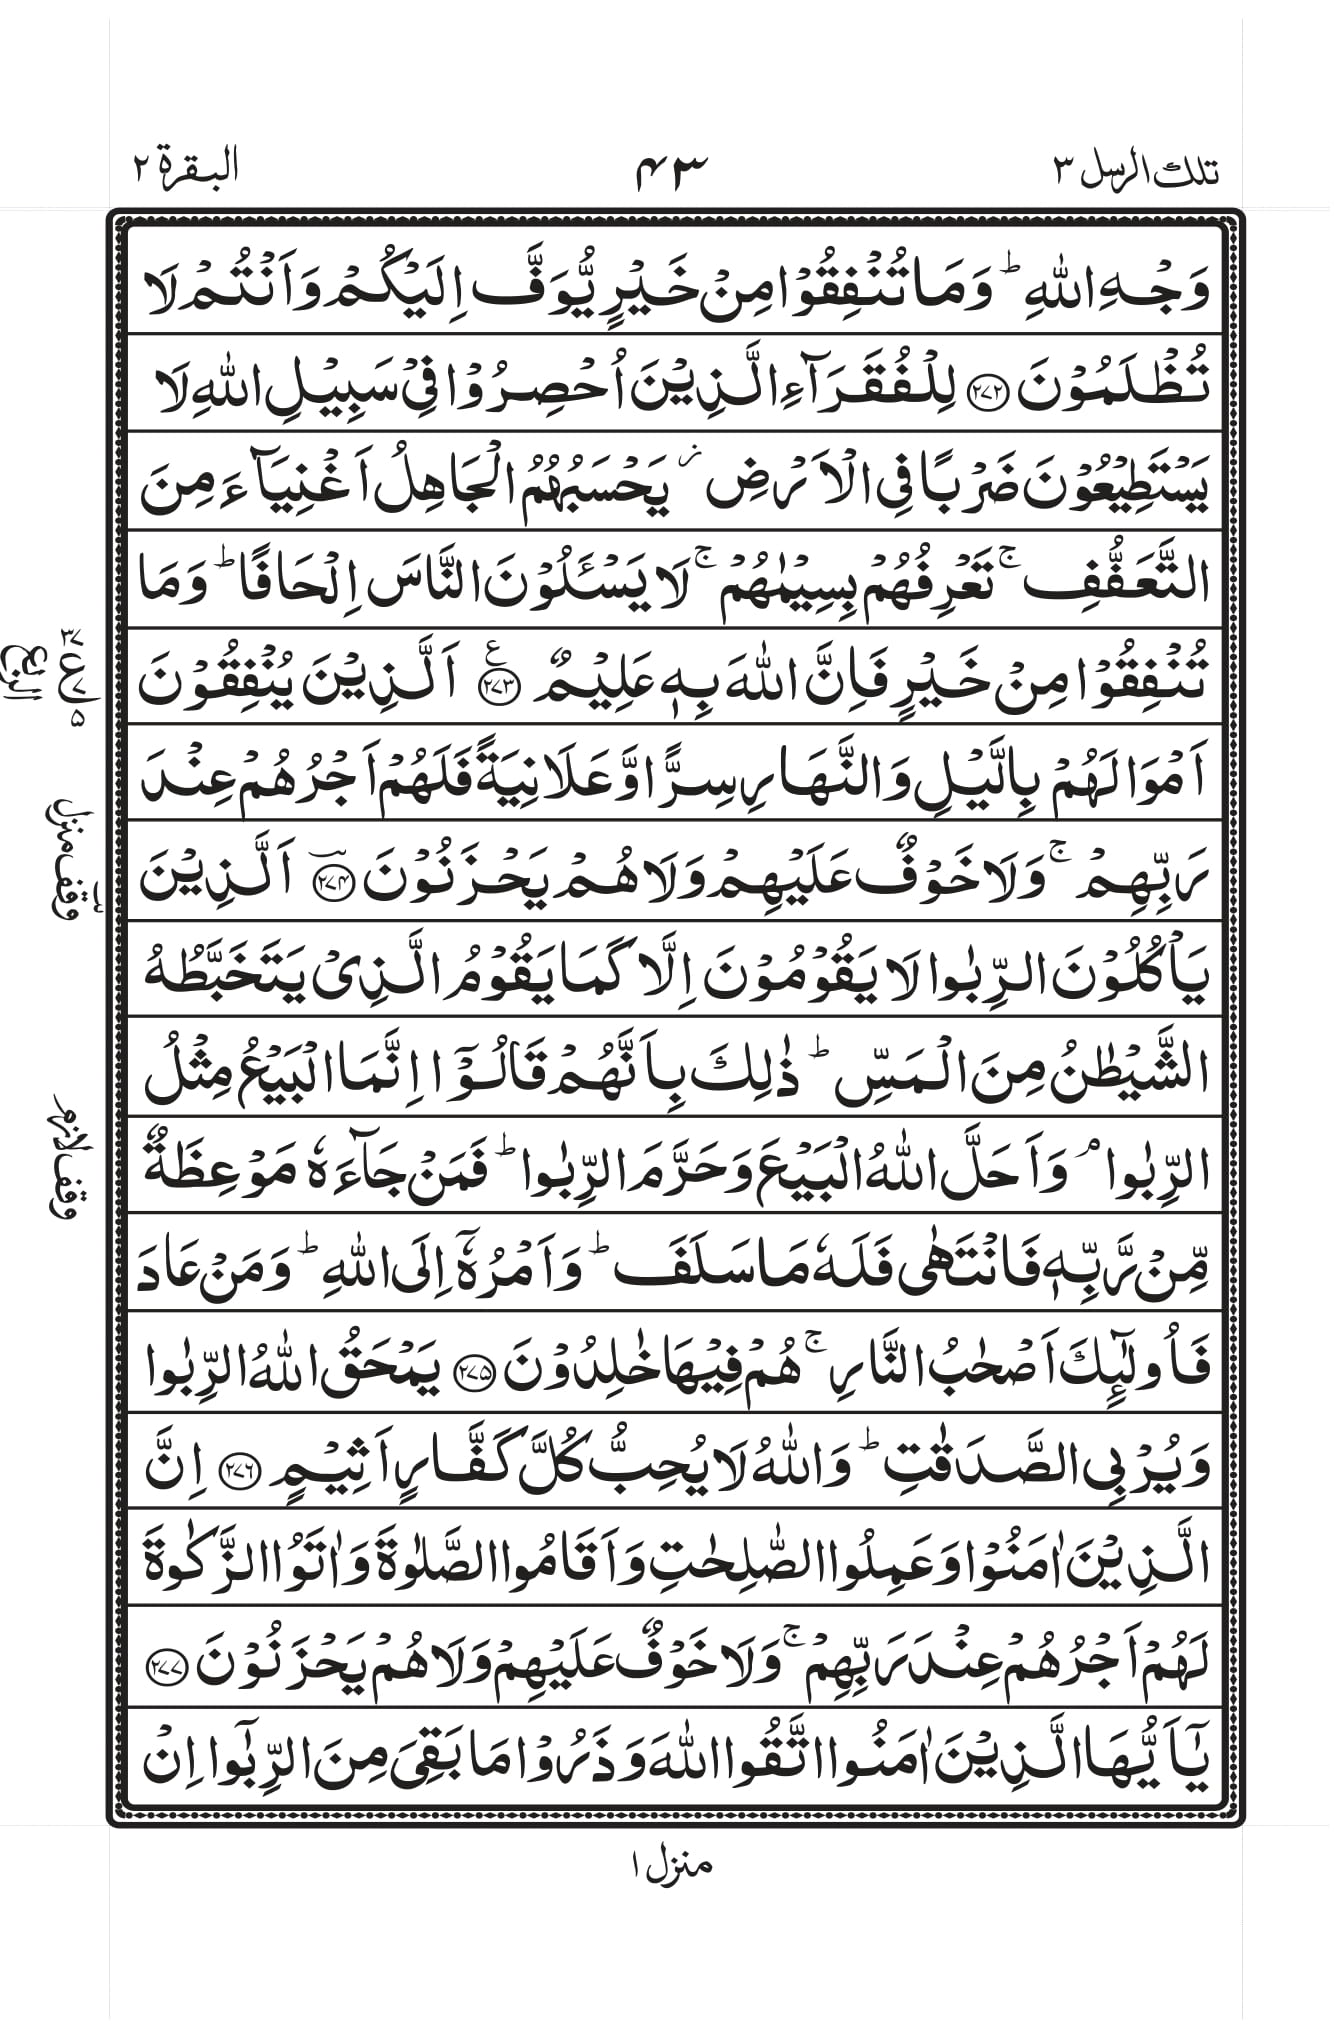 تلك الرسل ٣
٤٣
البقرة ٢
وَجْهِ اللّٰهِ ؕ وَمَا تُنْفِقُوْا مِنْ خَيْرٍ يُّوَفَّ اِلَيْكُمْ وَاَنْتُمْ لَا
تُظْلَمُوْنَ ﴿۲۷۲﴾ لِلْفُقَرَآءِ الَّذِيْنَ اُحْصِرُوْا فِيْ سَبِيْلِ اللّٰهِ لَا
يَسْتَطِيْعُوْنَ ضَرْبًا فِى الْاَرْضِ ؗ يَحْسَبُهُمُ الْجَاهِلُ اَغْنِيَآءَ مِنَ
التَّعَفُّفِ ۚ تَعْرِفُهُمْ بِسِيْمٰىهُمْ ۚ لَا يَسْـَٔلُوْنَ النَّاسَ اِلْحَافًا ؕ وَمَا
تُنْفِقُوْا مِنْ خَيْرٍ فَاِنَّ اللّٰهَ بِهٖ عَلِيْمٌ ﴿۲۷۳﴾ ع اَلَّذِيْنَ يُنْفِقُوْنَ
اَمْوَالَهُمْ بِالَّيْلِ وَالنَّهَارِ سِرًّا وَّعَلَانِيَةً فَلَهُمْ اَجْرُهُمْ عِنْدَ
رَبِّهِمْ ۚ وَلَا خَوْفٌ عَلَيْهِمْ وَلَا هُمْ يَحْزَنُوْنَ ﴿۲۷۴﴾ اَلَّذِيْنَ
يَاْكُلُوْنَ الرِّبٰوا لَا يَقُوْمُوْنَ اِلَّا كَمَا يَقُوْمُ الَّذِىْ يَتَخَبَّطُهُ
الشَّيْطٰنُ مِنَ الْمَسِّ ؕ ذٰلِكَ بِاَنَّهُمْ قَالُوْٓا اِنَّمَا الْبَيْعُ مِثْلُ
الرِّبٰوا ۘ وَاَحَلَّ اللّٰهُ الْبَيْعَ وَحَرَّمَ الرِّبٰوا ؕ فَمَنْ جَآءَهٗ مَوْعِظَةٌ
مِّنْ رَّبِّهٖ فَانْتَهٰى فَلَهٗ مَا سَلَفَ ؕ وَاَمْرُهٗٓ اِلَى اللّٰهِ ؕ وَمَنْ عَادَ
فَاُولٰٓئِكَ اَصْحٰبُ النَّارِ ۚ هُمْ فِيْهَا خٰلِدُوْنَ ﴿۲۷۵﴾ يَمْحَقُ اللّٰهُ الرِّبٰوا
وَيُرْبِى الصَّدَقٰتِ ؕ وَاللّٰهُ لَا يُحِبُّ كُلَّ كَفَّارٍ اَثِيْمٍ ﴿۲۷۶﴾ اِنَّ
الَّذِيْنَ اٰمَنُوْا وَعَمِلُوا الصّٰلِحٰتِ وَاَقَامُوا الصَّلٰوةَ وَاٰتَوُا الزَّكٰوةَ
لَهُمْ اَجْرُهُمْ عِنْدَ رَبِّهِمْ ۚ وَلَا خَوْفٌ عَلَيْهِمْ وَلَا هُمْ يَحْزَنُوْنَ ﴿۲۷۷﴾
يٰٓاَيُّهَا الَّذِيْنَ اٰمَنُوا اتَّقُوا اللّٰهَ وَذَرُوْا مَا بَقِىَ مِنَ الرِّبٰٓوا اِنْ
۳۷
ع ۷
۵
الربع
وقف منزل
وقف لازم
منزل ١